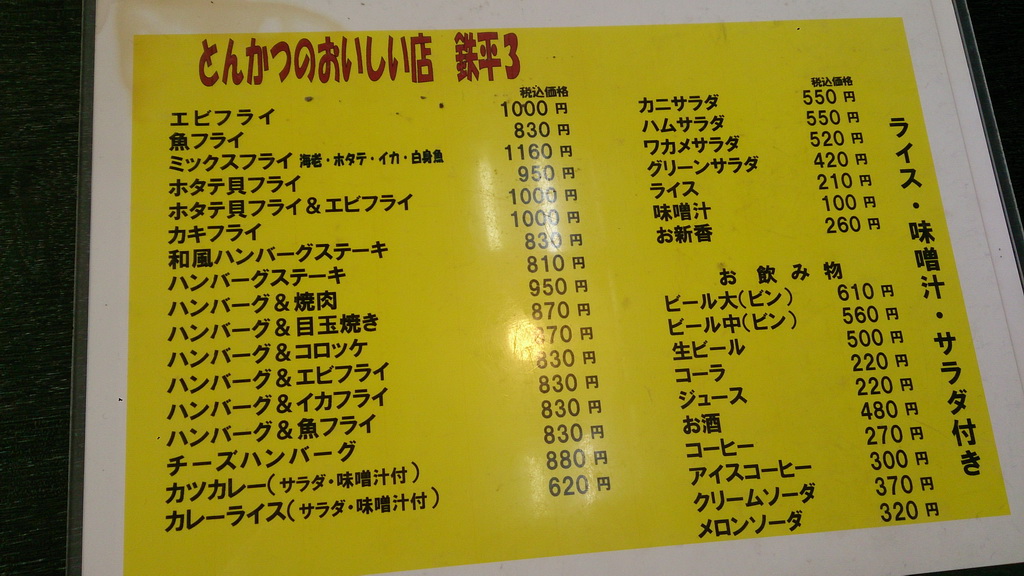 とんかつのおいしい店 鉄平3
税込価格
エビフライ 1000円
魚フライ 830円
ミックスフライ 海老・ホタテ・イカ・白身魚 1160円
ホタテ貝フライ 950円
ホタテ貝フライ&エビフライ 1000円
カキフライ 1000円
和風ハンバーグステーキ 830円
ハンバーグステーキ 810円
ハンバーグ&焼肉 950円
ハンバーグ&目玉焼き 870円
ハンバーグ&コロッケ 870円
ハンバーグ&エビフライ 830円
ハンバーグ&イカフライ 830円
ハンバーグ&魚フライ 830円
チーズハンバーグ 830円
カツカレー(サラダ・味噌汁付) 880円
カレーライス(サラダ・味噌汁付) 620円
税込価格
カニサラダ 550円
ハムサラダ 550円
ワカメサラダ 520円
グリーンサラダ 420円
ライス 210円
味噌汁 100円
お新香 260円
お飲み物
ビール大(ビン) 610円
ビール中(ビン) 560円
生ビール 500円
コーラ 220円
ジュース 220円
お酒 480円
コーヒー 270円
アイスコーヒー 300円
クリームソーダ 370円
メロンソーダ 320円
ライス・味噌汁・サラダ付き